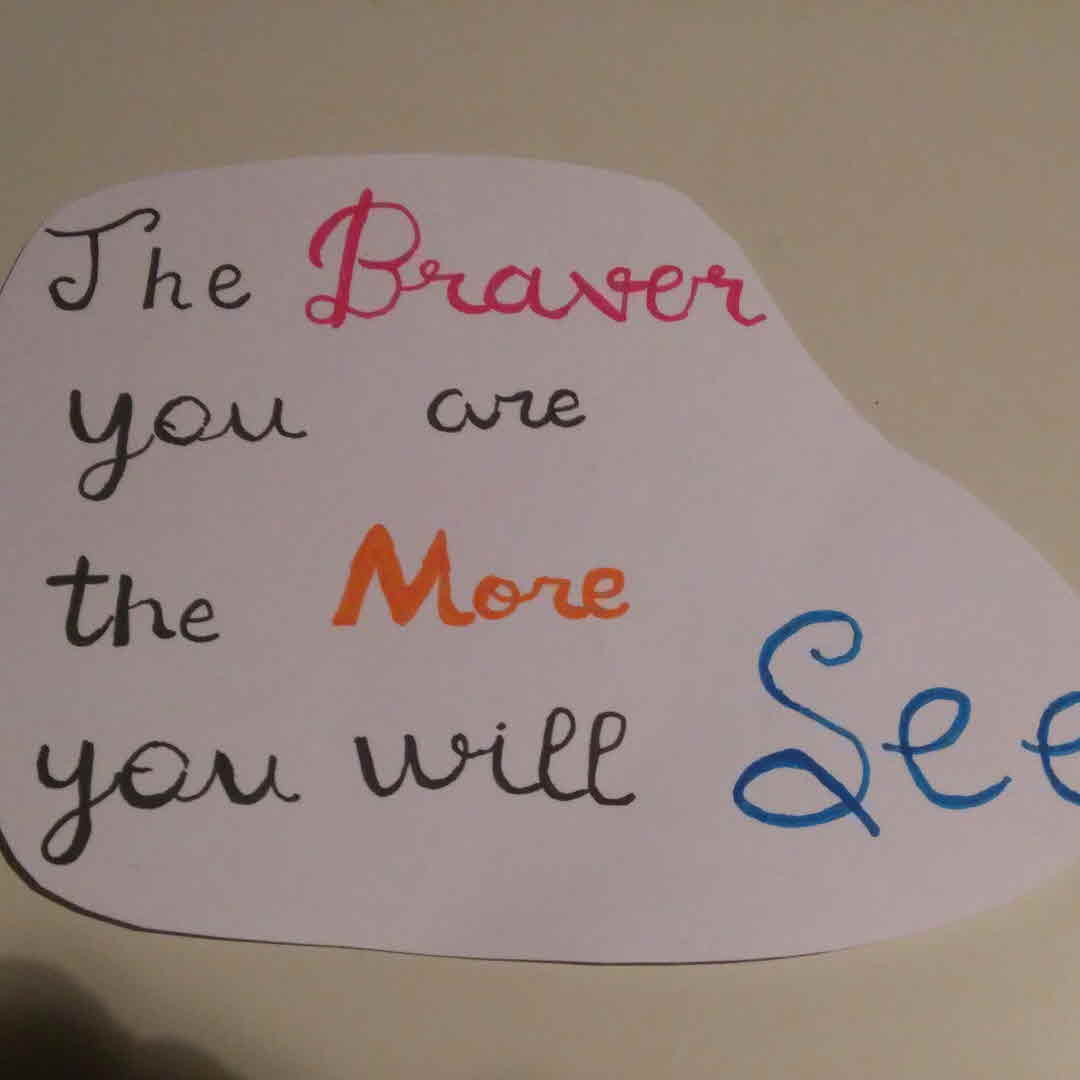 The Braver
you are
the More
you will See